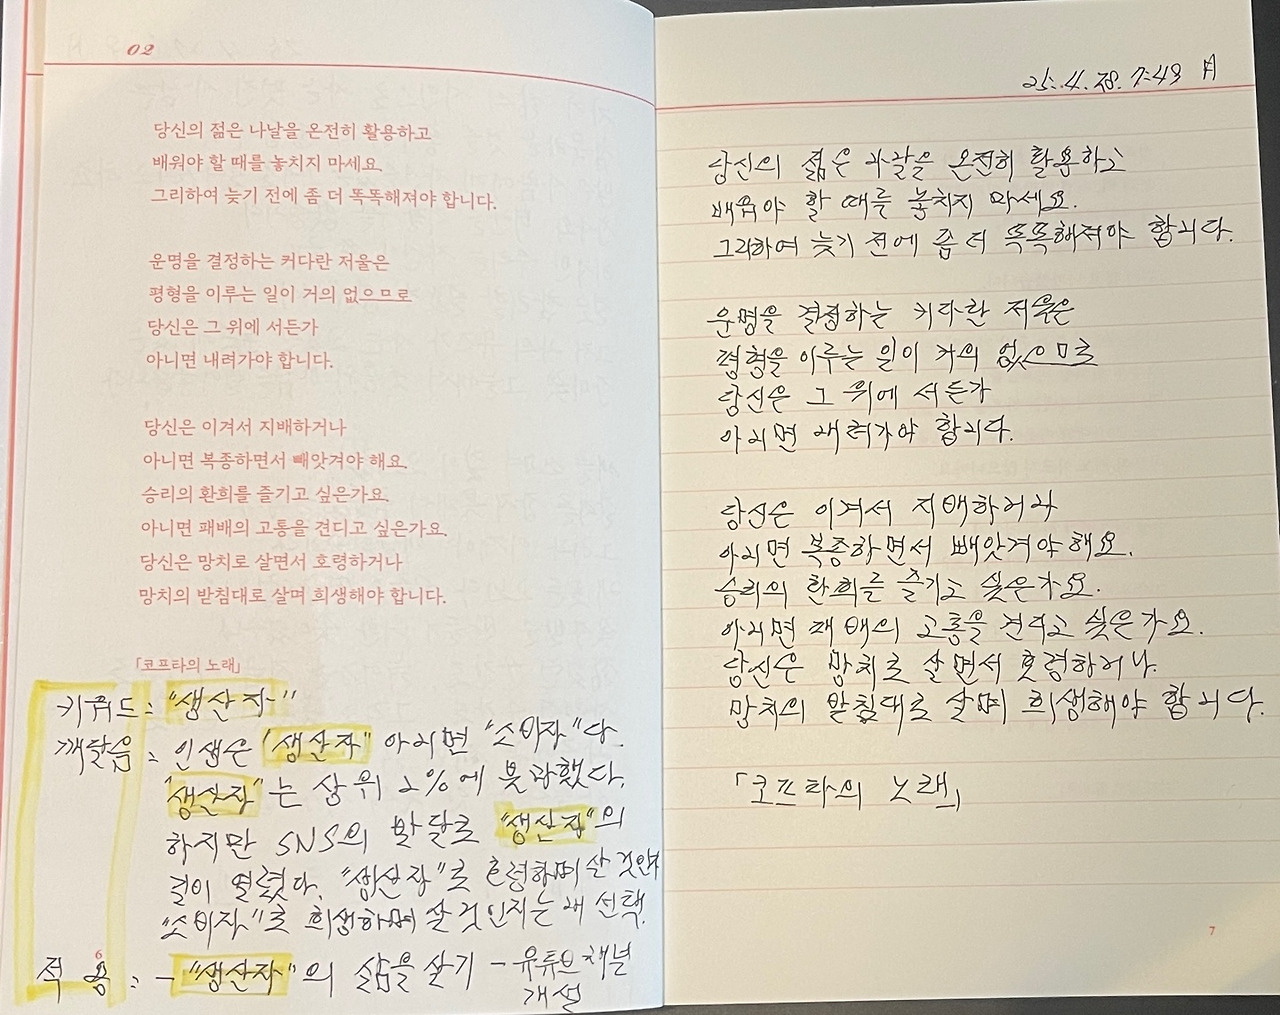 02
당신의 젊은 나날을 온전히 활용하고
배워야 할 때를 놓치지 마세요.
그리하여 늦기 전에 좀 더 똑똑해져야 합니다.
운명을 결정하는 커다란 저울은
평형을 이루는 일이 거의 없으므로
당신은 그 위에 서든가
아니면 내려가야 합니다.
당신은 이겨서 지배하거나
아니면 복종하면서 빼앗겨야 해요.
승리의 환희를 즐기고 싶은가요.
아니면 패배의 고통을 견디고 싶은가요.
당신은 망치로 살면서 호령하거나
망치의 받침대로 살며 희생해야 합니다.
「코프타의 노래」
키워드 : "생산자"
깨달음 : 인생은 "생산자" 아니면 "소비자"다.
"생산자"는 상위 2%에 불과했다.
하지만 SNS의 발달로 "생산자"의
길이 열렸다. "생산자"로 호령하며 살 것인지
"소비자"로 희생하며 살 것인지는 내 선택.
적용 : - "생산자"의 삶을 살기 - 유튜브 채널
개설
6
25. 4. 28. 7:49 月
당신의 젊은 나날을 온전히 활용하고
배워야 할 때를 놓치지 마세요.
그리하여 늦기 전에 좀 더 똑똑해져야 합니다.
운명을 결정하는 커다란 저울은
평형을 이루는 일이 거의 없으므로
당신은 그 위에 서든가
아니면 내려가야 합니다.
당신은 이겨서 지배하거나
아니면 복종하면서 빼앗겨야 해요.
승리의 환희를 즐기고 싶은가요.
아니면 패배의 고통을 견디고 싶은가요.
당신은 망치로 살면서 호령하거나
망치의 받침대로 살며 희생해야 합니다.
「코프타의 노래」
7